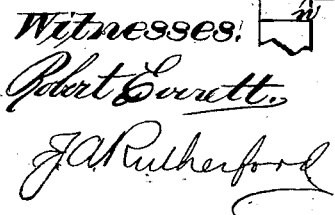 Witnesses.
Robert Everett.,
J. A. Rutherford